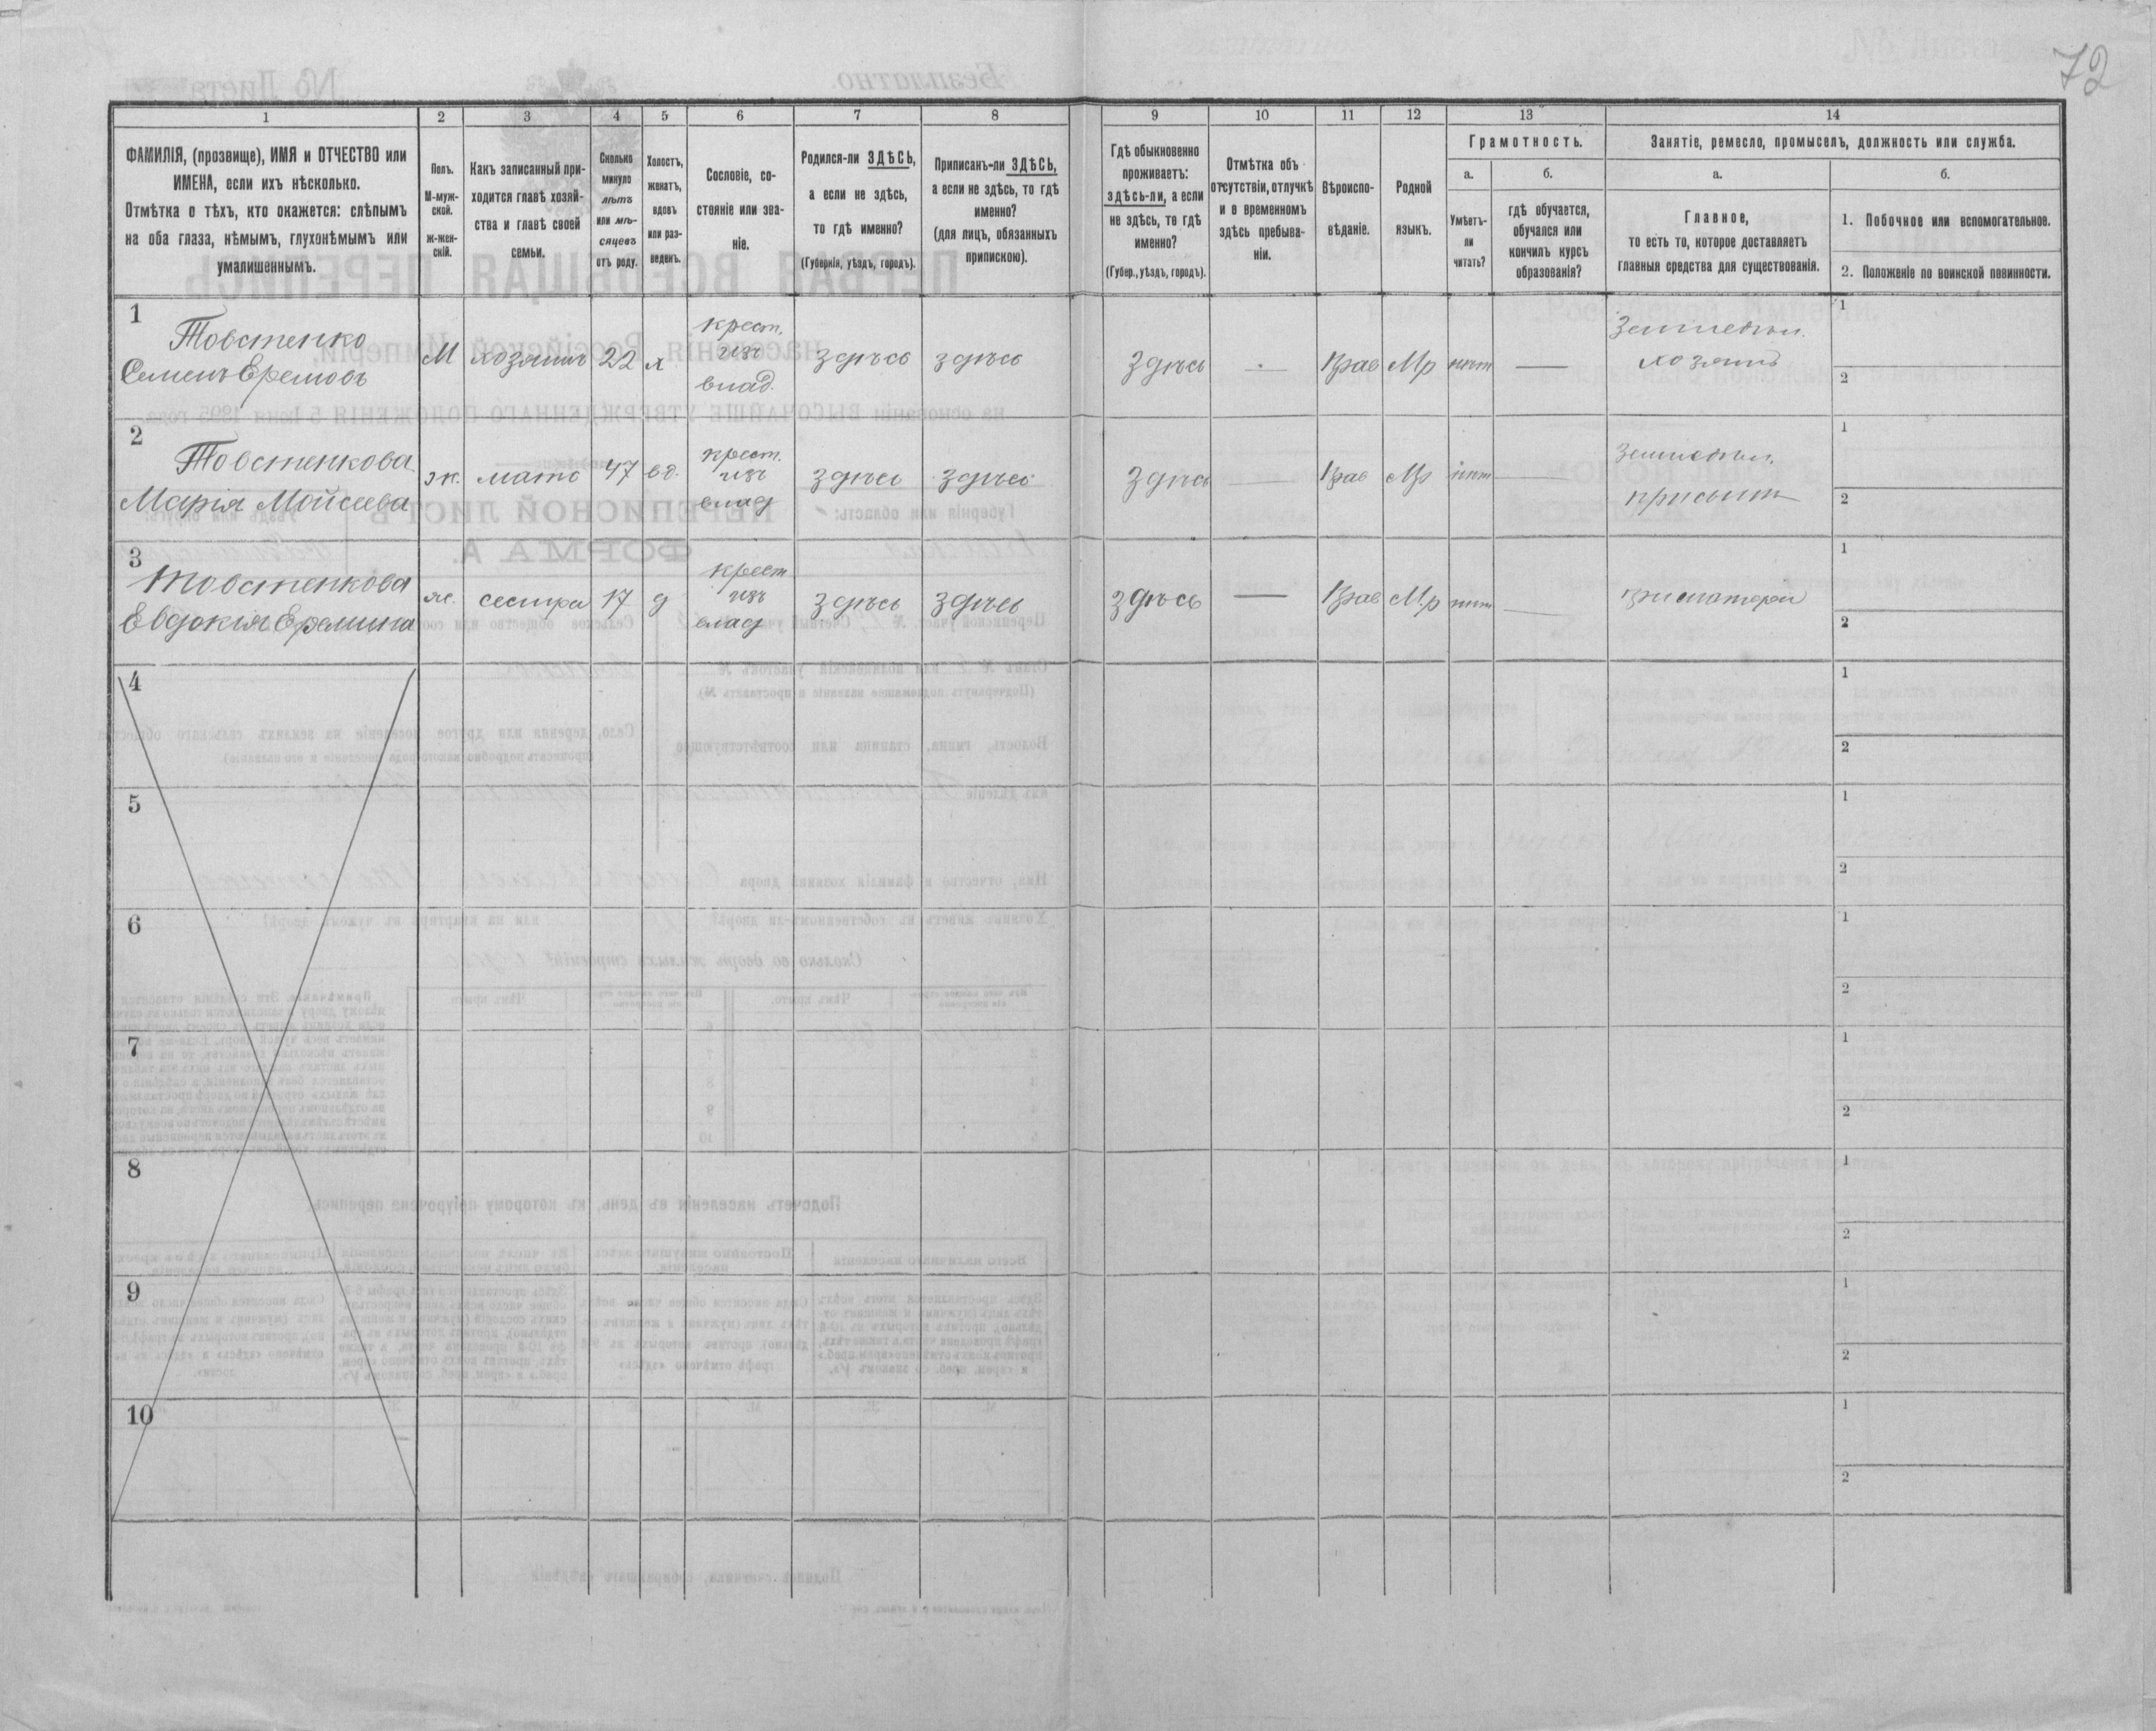 72
1 2 3 4 5 6 7 8 9 10 11 12 13 14
ФАМИЛІЯ, (прозвище), ИМЯ и ОТЧЕСТВО или
ИМЕНА, если ихъ нѣсколько.
Отмѣтка о тѣхъ, кто окажется: слѣпымъ
на оба глаза, нѣмымъ, глухонѣмымъ или
умалишеннымъ.
Полъ.
М-муж-
ской.
ж-жен-
скій.
Какъ записанный при-
ходится главѣ хозяй-
ства и главѣ своей
семьи.
Сколько
минуло
лѣтъ
или мѣ-
сяцевъ
отъ роду.
Холостъ,
женатъ,
вдовъ
или раз-
веденъ.
Сословіе, со-
стояніе или зва-
ніе.
Родился-ли ЗДѢСЬ,
а если не здѣсь,
то гдѣ именно?
(Губернія, уѣздъ, городъ).
Приписанъ-ли ЗДѢСЬ,
а если не здѣсь, то гдѣ
именно?
(для лицъ, обязанныхъ
припискою).
Гдѣ обыкновенно
проживаетъ:
здѣсь-ли, а если
не здѣсь, то гдѣ
именно?
(Губер., уѣздъ, городъ).
Отмѣтка объ
отсутствіи, отлучкѣ
и о временномъ
здѣсь пребыва-
ніи.
Вѣроиспо-
вѣданіе.
Родной
языкъ.
Грамотность.
а.
Умѣетъ-
ли
читать?
б.
гдѣ обучается,
обучался или
кончилъ курсъ
образованія?
Занятіе, ремесло, промыселъ, должность или служба.
а.
Главное,
то есть то, которое доставляетъ
главныя средства для существованія.
б.
1. Побочное или вспомогательное.
2. Положеніе по воинской повинности.
1
Товстенко
Семенъ Еремовъ
М
хозяинъ
22
х
крест.
изъ
влад.
здѣсь
здѣсь
здѣсь
—
Прав
Мр
нѣт
—
Земледѣл.
хозяинъ
1
2
2
Товстенкова
Марія Мойсеева
ж.
мать
47
вд.
крест.
изъ
влад
здѣсь
здѣсь
здѣсь
—
Прав
Мр
нѣт
—
Земледѣл.
1
2
3
Товстенкова
Евдокія Еремина
ж.
сестра
17
д
крест
изъ
влад
здѣсь
здѣсь
здѣсь
—
Прав
М.р
нѣт
—
при матери
1
2
4
1
2
5
1
2
6
1
2
7
1
2
8
1
2
9
1
2
10
1
2